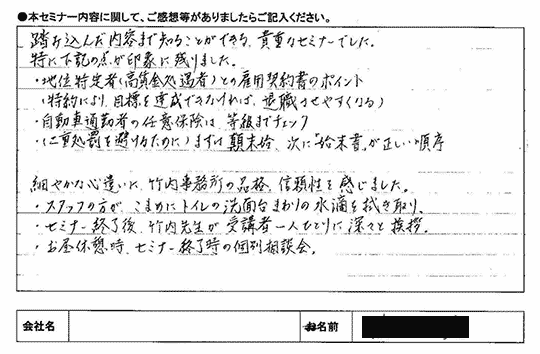 ●本セミナー内容に関して、ご感想等がありましたらご記入ください。
踏み込んだ内容まで知ることができる、貴重なセミナーでした。
特に下記の点が印象に残りました。
・地位特定者(高賃金処遇者)との雇用契約書のポイント
(特約により、目標を達成できなければ、退職させやすくなる)
・自動車通勤者の任意保険は、等級までチェック
・(二重処罰を避けるために)まずは顛末書、次に「始末書」が正しい順序
細やかな心遣いに、竹内事務所の品格、信頼性を感じました。
・スタッフの方が、こまめにトイレの洗面台まわりの水滴を拭き取り。
・セミナー終了後、竹内先生が受講者一人ひとりに深々と挨拶。
・お昼休憩時、セミナー終了時の個別相談会。
会社名
お名前